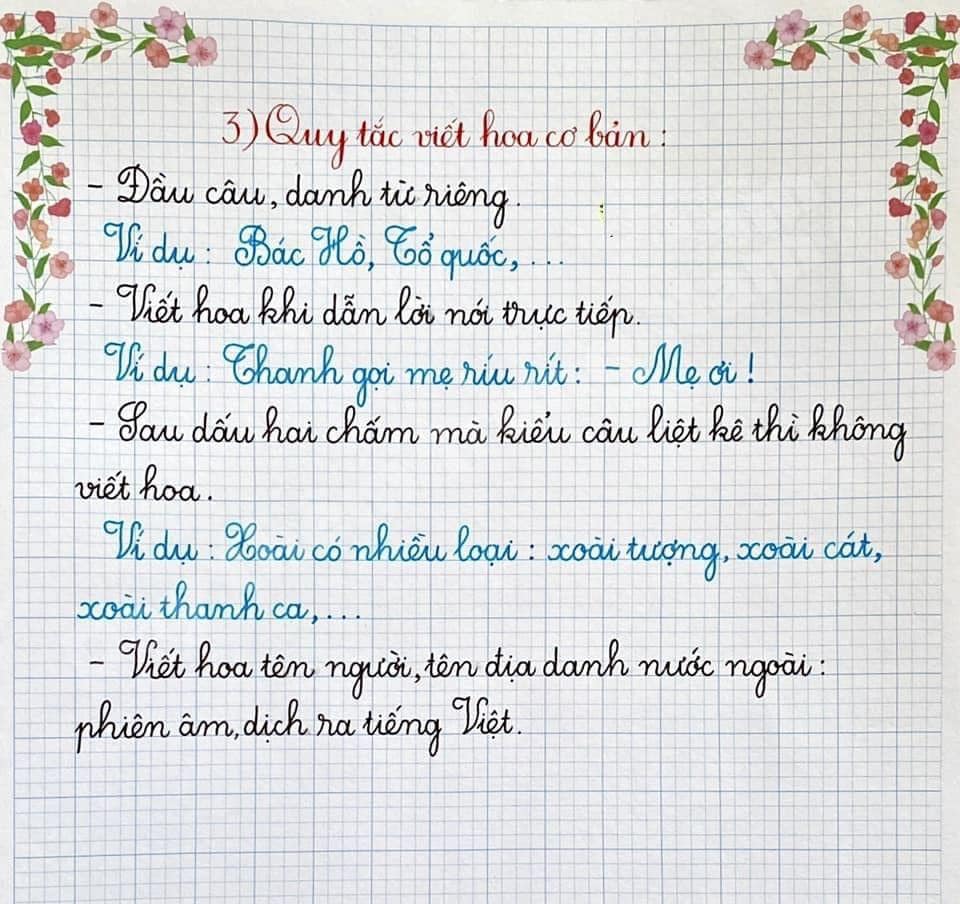 3) Quy tắc viết hoa cơ bản :
- Đầu câu, danh từ riêng.
Ví dụ : Bác Hồ, Tổ quốc, ...
- Viết hoa khi dẫn lời nói trực tiếp.
Ví dụ : Thanh gọi mẹ ríu rít : - Mẹ ơi !
- Sau dấu hai chấm mà kiểu câu liệt kê thì không
viết hoa.
Ví dụ : Xoài có nhiều loại : xoài tượng, xoài cát,
xoài thanh ca, ...
- Viết hoa tên người, tên địa danh nước ngoài :
phiên âm, dịch ra tiếng Việt.